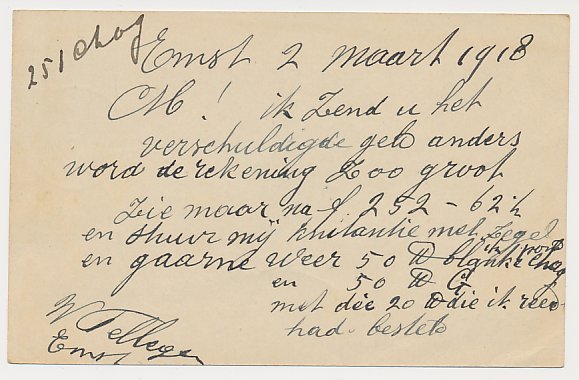 251 Chag
Emst 2 maart 1918
M! ik Zend u het
verschuldigde geld anders
word de rekening Zoo groot
Zie maar na f 252 - 62½
en stuur mij khitantie met Zegel
en gaarne weer 50 ℔ blanke Chag
en 50 ℔ G
met die 20 ℔ die ik reeds
had besteld
W Tellegen
Emst